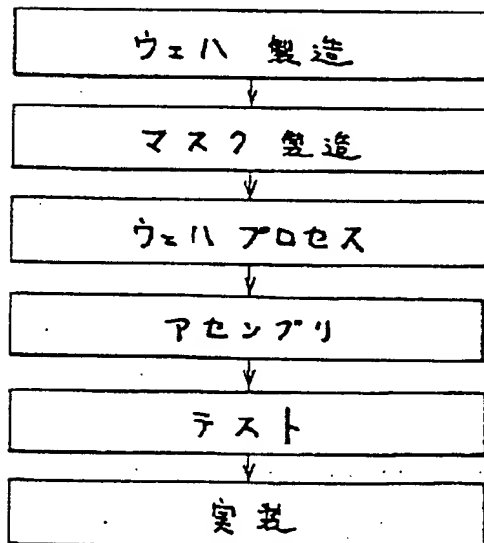 ウェハ 製造
マスク 製造
ウェハ プロセス
アセンブリ
テスト
実装